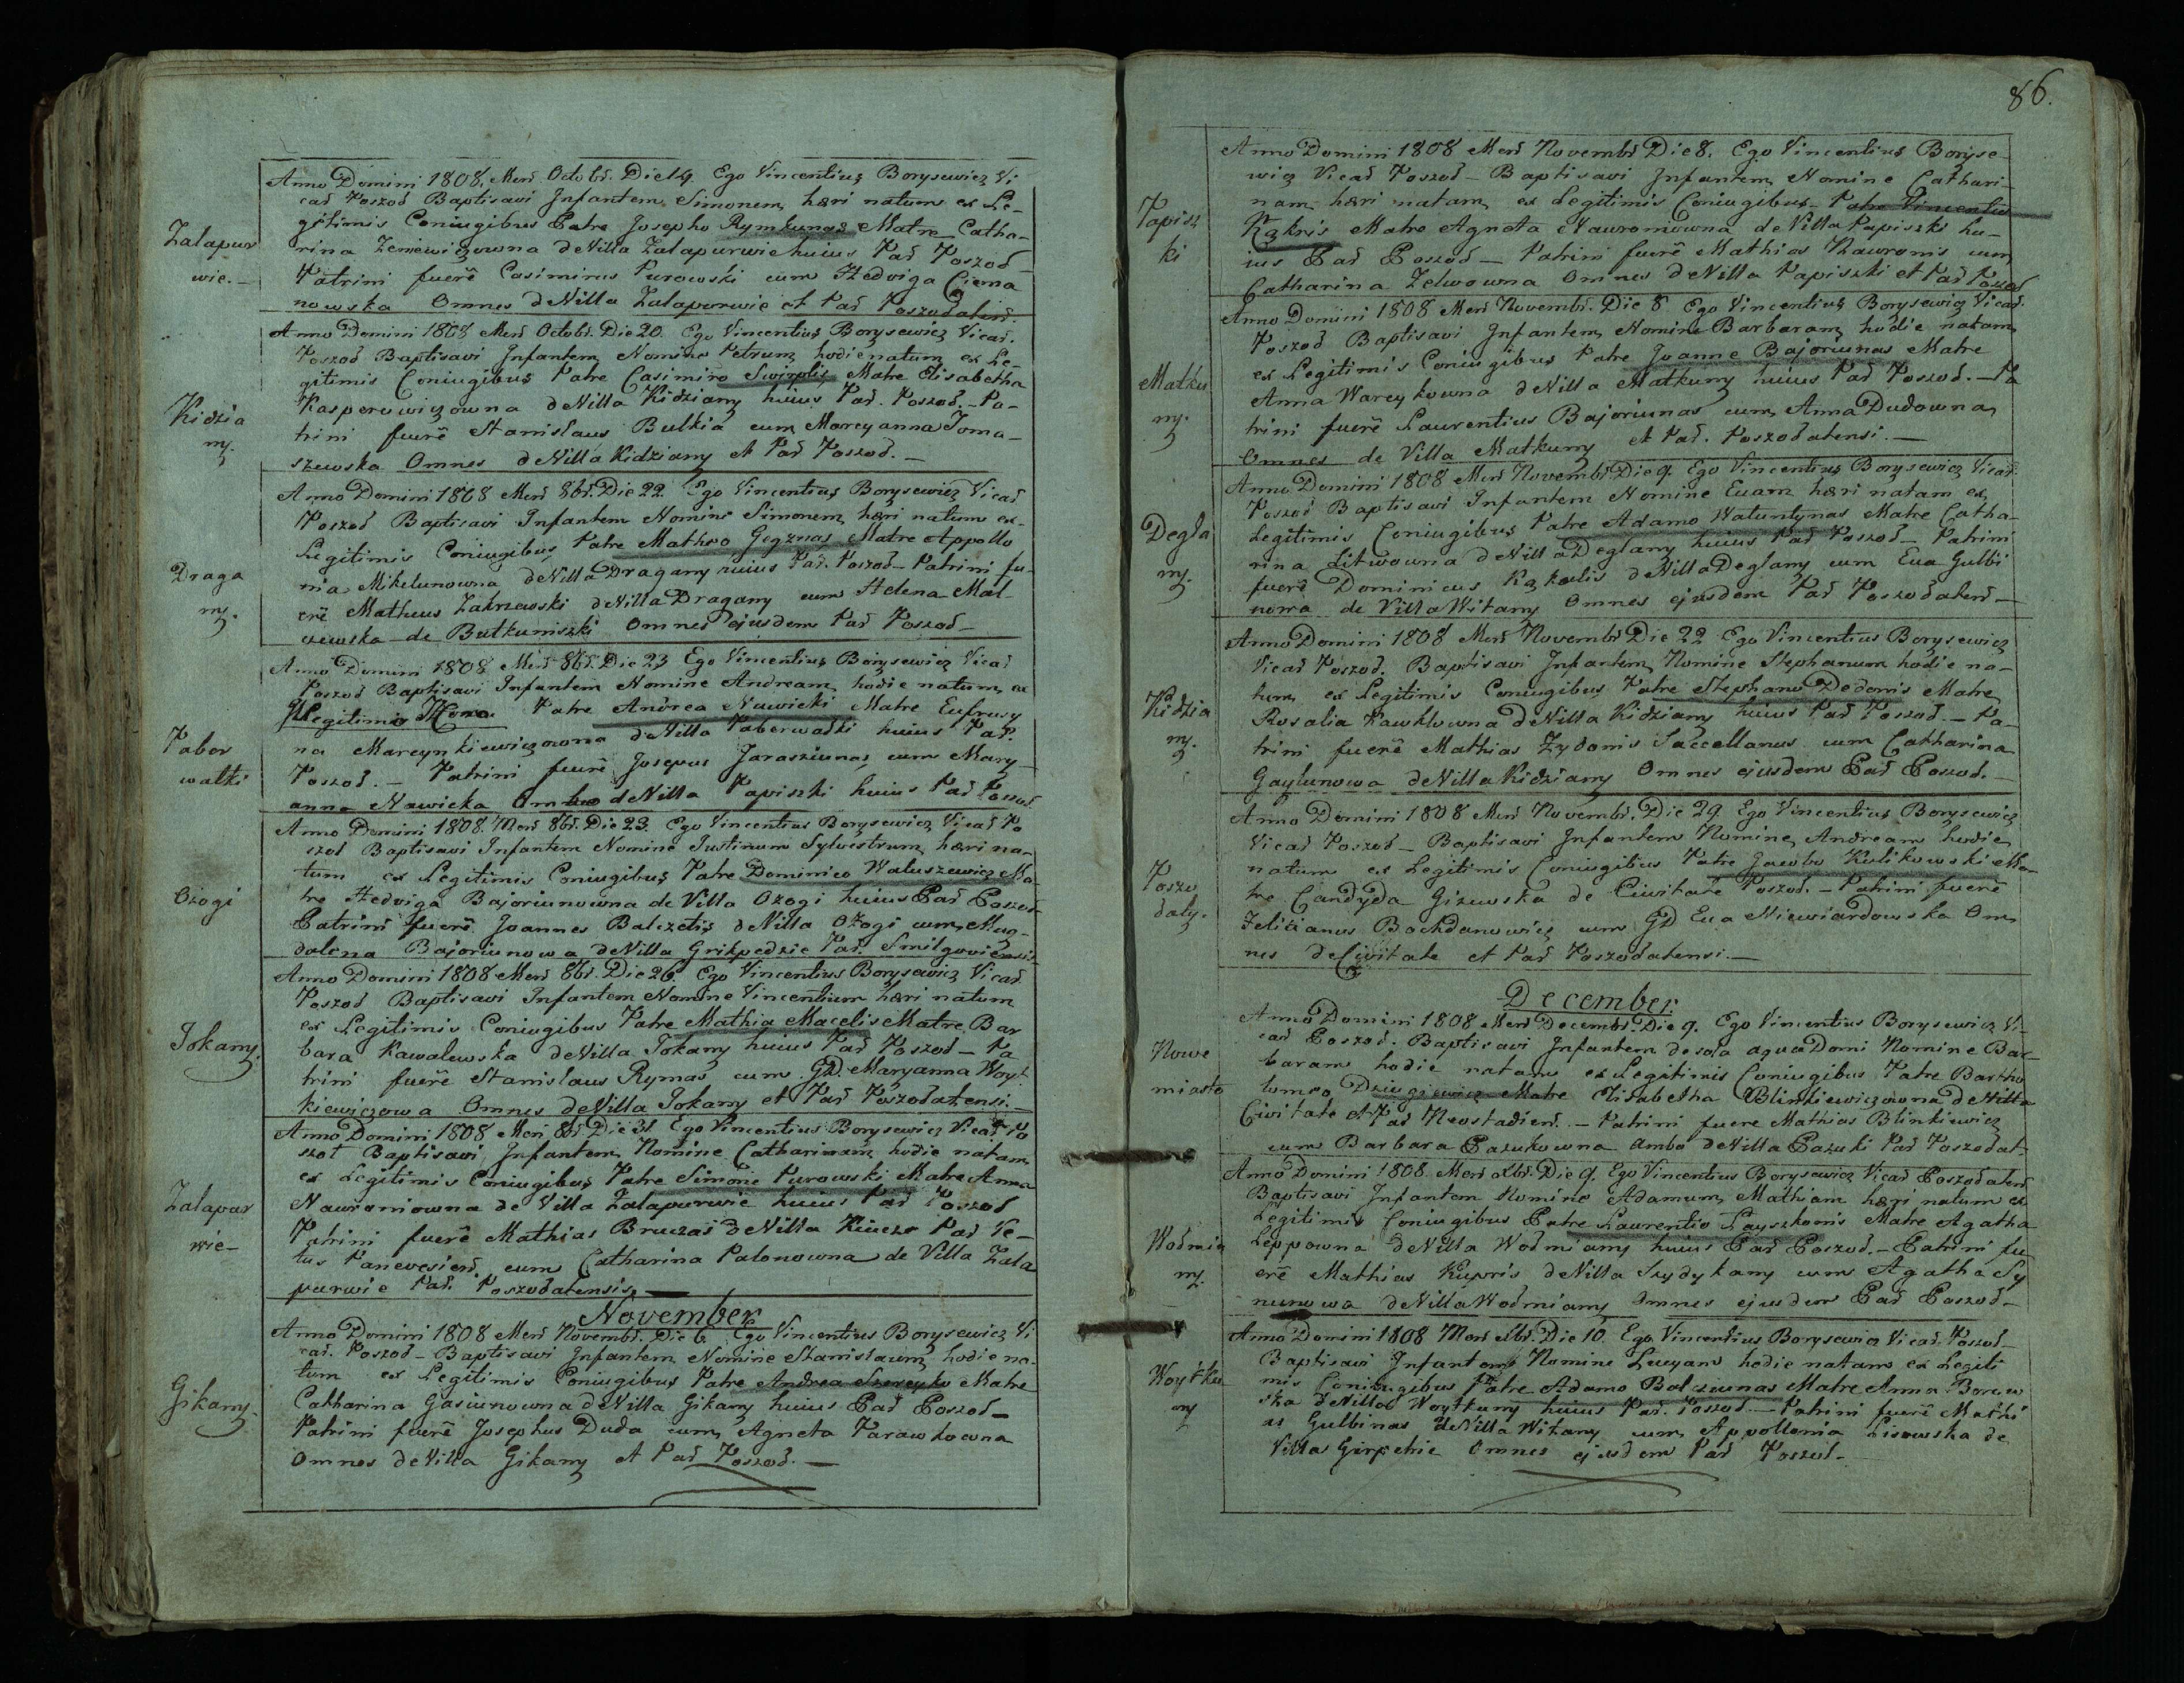 Zalapur
wie.-
Anno Domini 1808. Mens Octobr. Die 14. Ego Vincentius Borysewicz Vi
car Poszod Baptisavi Infantem Simonem heri natum ex Le-
gitimis Coniugibus Patre Josepho Rymkunas Matre Catha-
rina Zeniewiczowna de Villa Zalapurwie huius Par Poszod
Patrini fuere Casimirus Purowski cum Hedviga Ciema
nowska Omnes de Villa Zalapurwie et Par Poszodatens
Kidzia
ny.
Anno Domini 1808 Mens Octobr. Die 20. Ego Vincentius Borysewicz Vicar.
Poszod Baptisavi Infantem Nomine Petrum hodie natum ex Le-
gitimis Coniugibus Patre Casimiro Swirplis Matre Elisabetha
Kasperowiczowna de Villa Kidziany huius Par. Poszod.- Pa-
trini fuere Stanislaus Bulkia cum Marcyanna Toma-
szewska Omnes de Villa Kidziany et Par Poszod.-
Draga
ny.
Anno Domini 1808 Mens 8br. Die 22 Ego Vincentius Borysewicz Vicar
Poszod Baptisavi Infantem Nomine Simonem heri natum ex-
Legitimis Coniugibus Patre Matheo Gegznas Matre Appollo
nia Mikelunowna de Villa Dragany huius Par. Poszod- Patrini fu-
ere Matheus Zakrzewski de Villa Dragany cum Helena Mal-
czewska de Butkuniszki Omnes ejusdem Par Poszod-
Paber
walki
Anno Domini 1808 Mens 8br. Die 23 Ego Vincentius Borysewicz Vicar
Poszod Baptisavi Infantem Nomine Andream hodie natum ex
Illegitimis Patre Andrea Nawicki Matre Eufrusy
na Marcynkiewiczowna de Villa Paberwalki huius Par.
Poszod.- Patrini fuere Josepus Jaraszunas cum Mary-
anna Nawicka Ambo de Villa Papiszki huius Par Poszod
Ozogi
Anno Domini 1808. Mens 8br. Die 23. Ego Vincentius Borysewicz Vicar Po
szod Baptisavi Infantem Nomine Justinum Sylvestrum heri na-
tum ex Legitimis Coniugibus Patre Dominico Waluszewicz Ma-
tre Hedviga Bajoriunowna de Villa Ozogi huius Par Poszod-
Patrini fuere Joannes Balczetis de Villa Ozogi cum Mag-
dalena Bajoriunowa de Villa Grikpedzie Par. Smilgoviensi
Jokany.
Anno Domini 1808 Mens 8br. Die 26. Ego Vincentius Borysewicz Vicar
Poszod Baptisavi Infantem Nomine Vincentium heri natum
ex Legitimis Coniugibus Patre Mathia Macelis Matre Bar
bara Kawalewska de Villa Jokany huius Par Poszod- Pa
trini fuere Stanislaus Rymas cum GD. Maryanna Woyt
kiewiczowa Omnes de Villa Jokany et Par Poszodatensi.-
Zalapur
wie-
Anno Domini 1808 Mens 8br Die 31. Ego Vincentius Borysewicz Vicar Po
szod Baptisavi Infantem Nomine Catharinam hodie natam
ex Legitimis Coniugibus Patre Simone Purowski Matre Anna
Nawroniowna de Villa Zalapurwie huius Par Poszod
Patrini fuere Mathias Bruczas de Villa Kiucze Par Ve-
tus Panevesiens cum Catharina Palonowna de Villa Zala
purwie Par. Poszodatensis.-
November
Gikany.
Anno Domini 1808 Mens Novembr. Die 6 Ego Vincentius Borysewicz Vi
car. Poszod- Baptisavi Infantem Nomine Stanislaum hodie na-
tum ex Legitimis Coniugibus Patre Andrea Szereyko Matre
Catharina Gasiunowna de Villa Gikany huius Par Poszod-
Patrini fuere Josephus Duda cum Agneta Parawkowna
Omnes de Villa Gikany et Par Poszod.-
86.
Papisz
ki
Anno Domini 1808 Mens Novembr Die 8. Ego Vincentius Boryse-
wicz Vicar Poszod- Baptisavi Infantem Nomine Cathari-
nam heri natam ex Legitimis Coniugibus Patre Vincentio
Kąkris Matre Agneta Nawroniowna de Villa Papiszki hu-
ius Par Poszod- Patrini fuere Mathias Nawronis cum
Catharina Zelwowna Omnes de Villa Papiszki et Par Poszod
Matku
ny.
Anno Domini 1808 Mens Novembr. Die 8 Ego Vincentius Borysewicz Vicar.
Poszod Baptisavi Infantem Nomine Barbaram hodie natam
ex Legitimis Coniugibus Patre Joanne Bajoriunas Matre
Anna Wareykowna de Villa Matkuny huius Par Poszod.- Pa
trini fuere Laurentius Bajoriunas cum Anna Dudowna
Omnes de Villa Matkuny et Par. Poszodatensi.-
Degla
ny.
Anno Domini 1808 Mens Novembr Die 9. Ego Vincentius Borysewicz Vicar
Poszod Baptisavi Infantem Nomine Evam heri natam ex
Legitimis Coniugibus Patre Adamo Watuntynas Matre Catha-
rina Litwowna de Villa Deglany huius Par Poszod- Patrini
fuere Dominicus Kąkulis de Villa Deglany cum Eva Gulbi
nowa de Villa Witany Omnes ejusdem Par Poszodatens-
Kidzia
ny.
Anno Domini 1808 Mens Novembr Die 22 Ego Vincentius Borysewicz
Vicar Poszod. Baptisavi Infantem Nomine Stephanum hodie na-
tum ex Legitimis Coniugibus Patre Stephano Dedonis Matre
Rosalia Kawklowna de Villa Kidziany huius Par Poszod.- Pa-
trini fuere Mathias Zydonis Saccellanus cum Catharina
Gaylunowa de Villa Kidziany Omnes ejusdem Par Poszod.-
Poszo
daly.
Anno Domini 1808 Mens Novembr. Die 29. Ego Vincentius Borysewicz
Vicar Poszod- Baptisavi Infantem Nomine Andream hodie
natum ex Legitimis Coniugibus Patre Jacobo Kulikowski Ma-
tre Candyda Gizewska de Civitate Poszod.- Patrini fuere
Felicianus Bochdanowicz cum GD Eva Niewiardowska Om
nes de Civitate et Par Poszodatensi.-
December
Nowe
miasto
Anno Domini 1808 Mens Decembr. Die 9. Ego Vincentius Borysewicz Vi-
car Poszod. Baptisavi Infantem de sola aqua Domi Nomine Bar-
baram hodie natam ex Legitimis Coniugibus Patre Bartho
lomeo Dziugiewicz Matre Elisabetha Blinkiewiczowna de Villa
Civitate et Par Neostadiens.- Patrini fuere Mathias Blinkiewicz
cum Barbara Pazukowna ambo de Villa Pazuki Par Poszodat-
Wodmia
ny.
Anno Domini 1808. Mens xbr. Die 9. Ego Vincentius Borysewicz Vicar Poszodatens
Baptisavi Infantem Nomine Adamum Mathiam heri natum ex
Legitimis Coniugibus Patre Laurentio Łayszkonis Matre Agatha
Leppowna de Villa Wodmiany huius Par Poszod.- Patrini fu
ere Mathias Kupris de Villa Szydykany cum Agatha Sy
nunowa de Villa Wodmiany Omnes ejusdem Par Poszod-
Woytku
ny
Anno Domini 1808 Mens xbr. Die 10. Ego Vincentius Borysewicz Vicar. Poszod-
Baptisavi Infantem Nomine Lucyam hodie natam ex Legiti
mis Coniugibus Patre Adamo Balczunas Matre Anna Borow
ska de Villa Woytkuny huius Par. Poszod.- Patrini fuere Mathi
as Gulbinas de Villa Witany cum Appollonia Lisowska de
Villa Girpetrie Omnes ejusdem Par Poszod.-